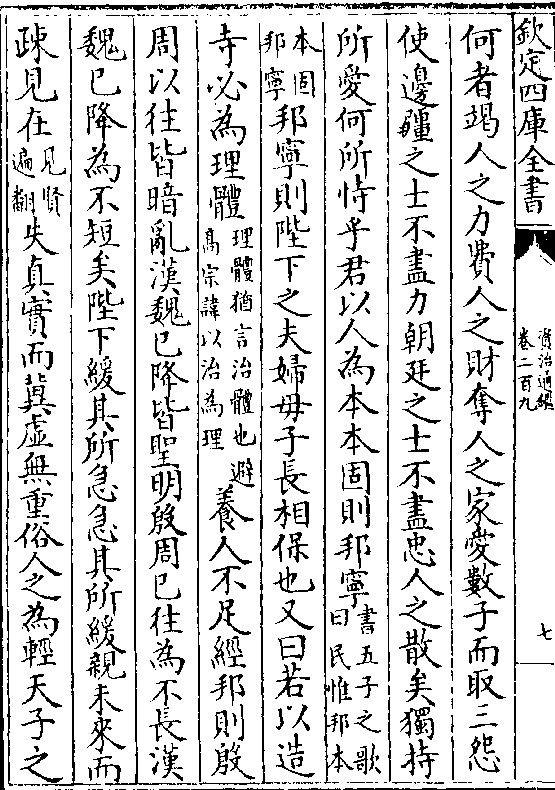 欽定四庫全書
資治通鑑
卷二百九
七
何者竭人之力費人之財奪人之家愛數子而取三怨
使邊疆之士不盡力朝廷之士不盡忠人之散矣獨持
所愛何所恃乎君以人為本本固則邦寧書五子之歌曰民惟邦本
本固邦寧邦寧則陛下之夫婦母子長相保也又曰若以造
寺必為理體理體猶言治體也避高宗諱以治為理養人不足經邦則殷
周以往皆暗亂漢魏已降皆聖明殷周已往為不長漢
魏已降為不短矣陛下緩其所急急其所緩親未來而
疎見在見賢遍翻失真實而冀虛無重俗人之為輕天子之